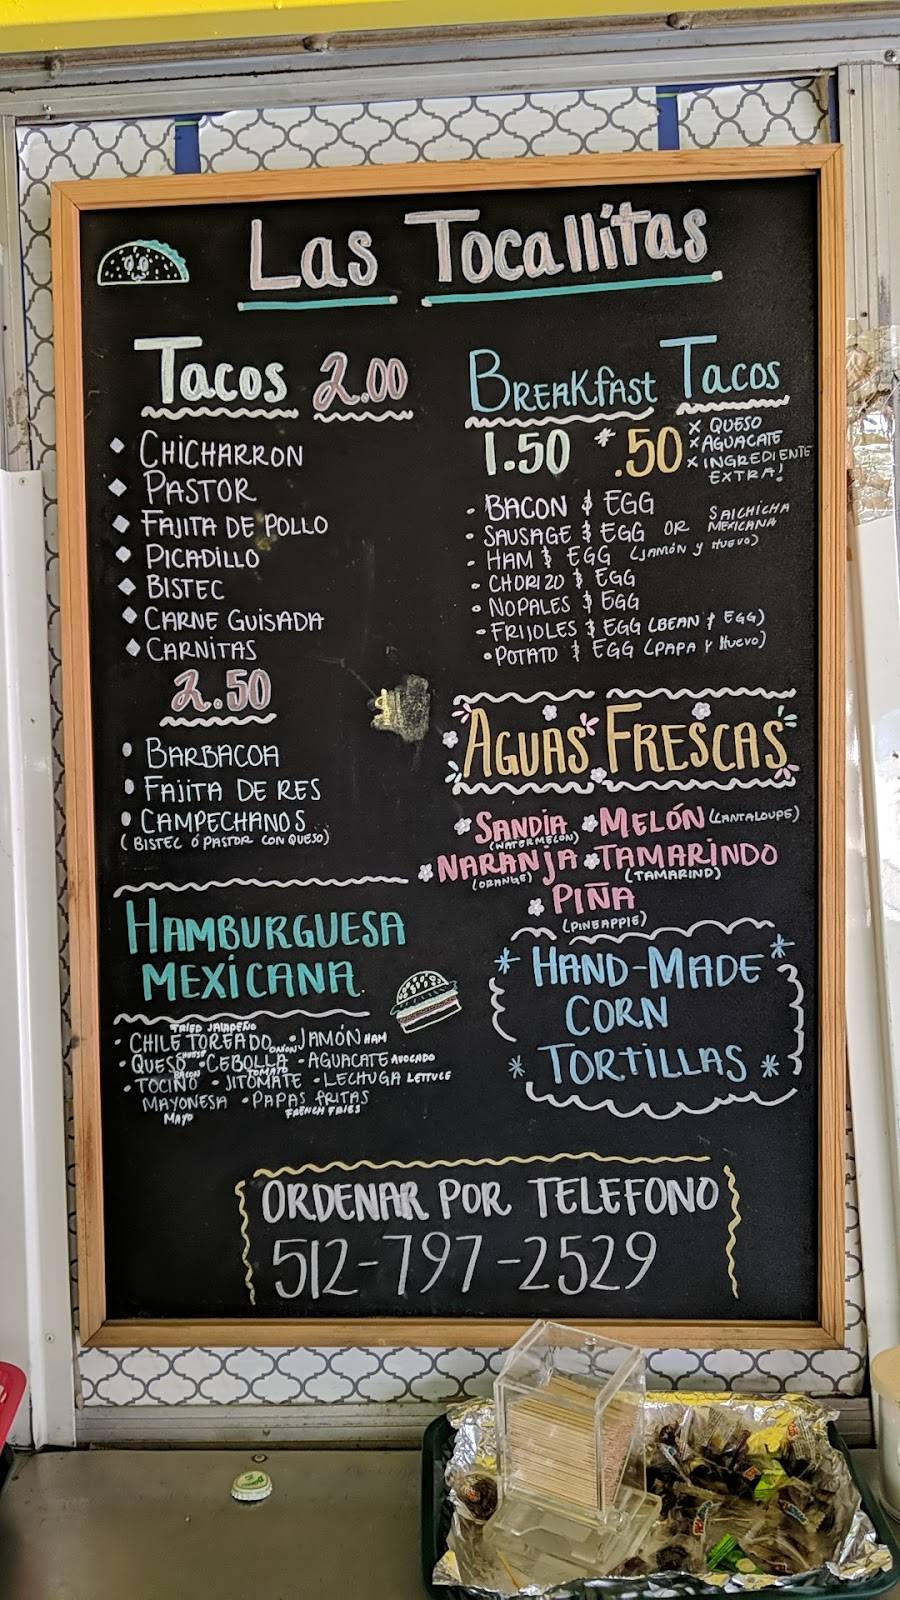 Las Tocallitas
Tacos 2.00
CHICHARRON
PASTOR
FAJITA DE POLLO
PICADILLO
BISTEC
CARNE GUISADA
CARNITAS
2.50
BARBACOA
FAJITA DE RES
CAMPECHANOS
(BISTEC Ó PASTOR CON QUESO)
HAMBURGUESA
MEXICANA
FRIED JALAPEÑO
CHILE TOREADO JAMÓN HAM
CHEESE ONIONS
QUESO CEBOLLA AGUACATE AVOCADO
BACON TOMATO
TOCINO JITOMATE LECHUGA LETTUCE
MAYONESA PAPAS FRITAS
MAYO FRENCH FRIES
BREAKFAST TACOS
1.50 * .50 x QUESO
x AGUACATE
x INGREDIENTE
EXTRA!
BACON & EGG
SAUSAGE & EGG OR SALCHICHA
MEXICANA
HAM & EGG (JAMÓN y HUEVO)
CHORIZO & EGG
NOPALES & EGG
FRIJOLES & EGG (BEAN & EGG)
POTATO & EGG (PAPA Y HUEVO)
AGUAS FRESCAS
SANDÍA MELÓN (CANTALOUPE)
(WATERMELON)
NARANJA TAMARINDO
(ORANGE) (TAMARIND)
PIÑA
(PINEAPPLE)
HAND-MADE
CORN
TORTILLAS
ORDENAR POR TELEFONO
512-797-2529